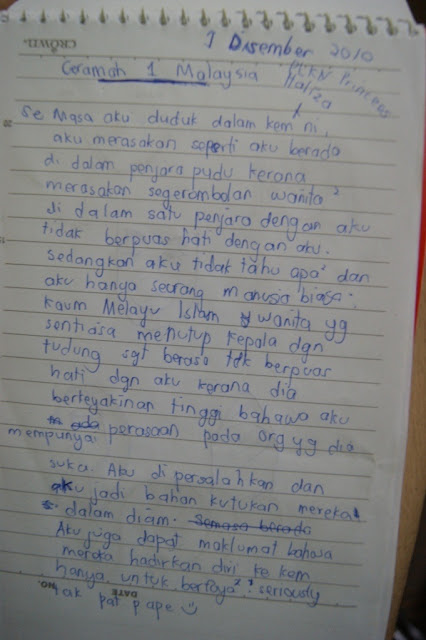 CROWN
7 Disember 2010
Ceramah 1 Malaysia
PLKN Princess
Haliza
Se Masa aku duduk dalam kem ni,
aku merasakan seperti aku berada
di dalam penjara pudu kerana
merasakan segerombolan wanita²
di dalam satu penjara dengan aku
tidak berpuas hati dengan aku.
sedangkan aku tidak tahu apa² dan
aku hanya seorang manusia biasa.
kaum Melayu Islam wanita yg
sentiasa menutup kepala dgn
tudung sgt berasa tdk berpuas
hati dgn aku kerana dia
berkeyakinan tinggi bahawa aku
mempunyai perasaan pada org yg dia
suka. Aku di persalahkan dan
aku jadi bahan kutukan mereka
dalam diam. Semasa berada
Aku juga dapat maklumat bahawa
mereka hadirkan diri ke kem
hanya untuk berfoya². seriously
tak pat pape
DATE
NO.